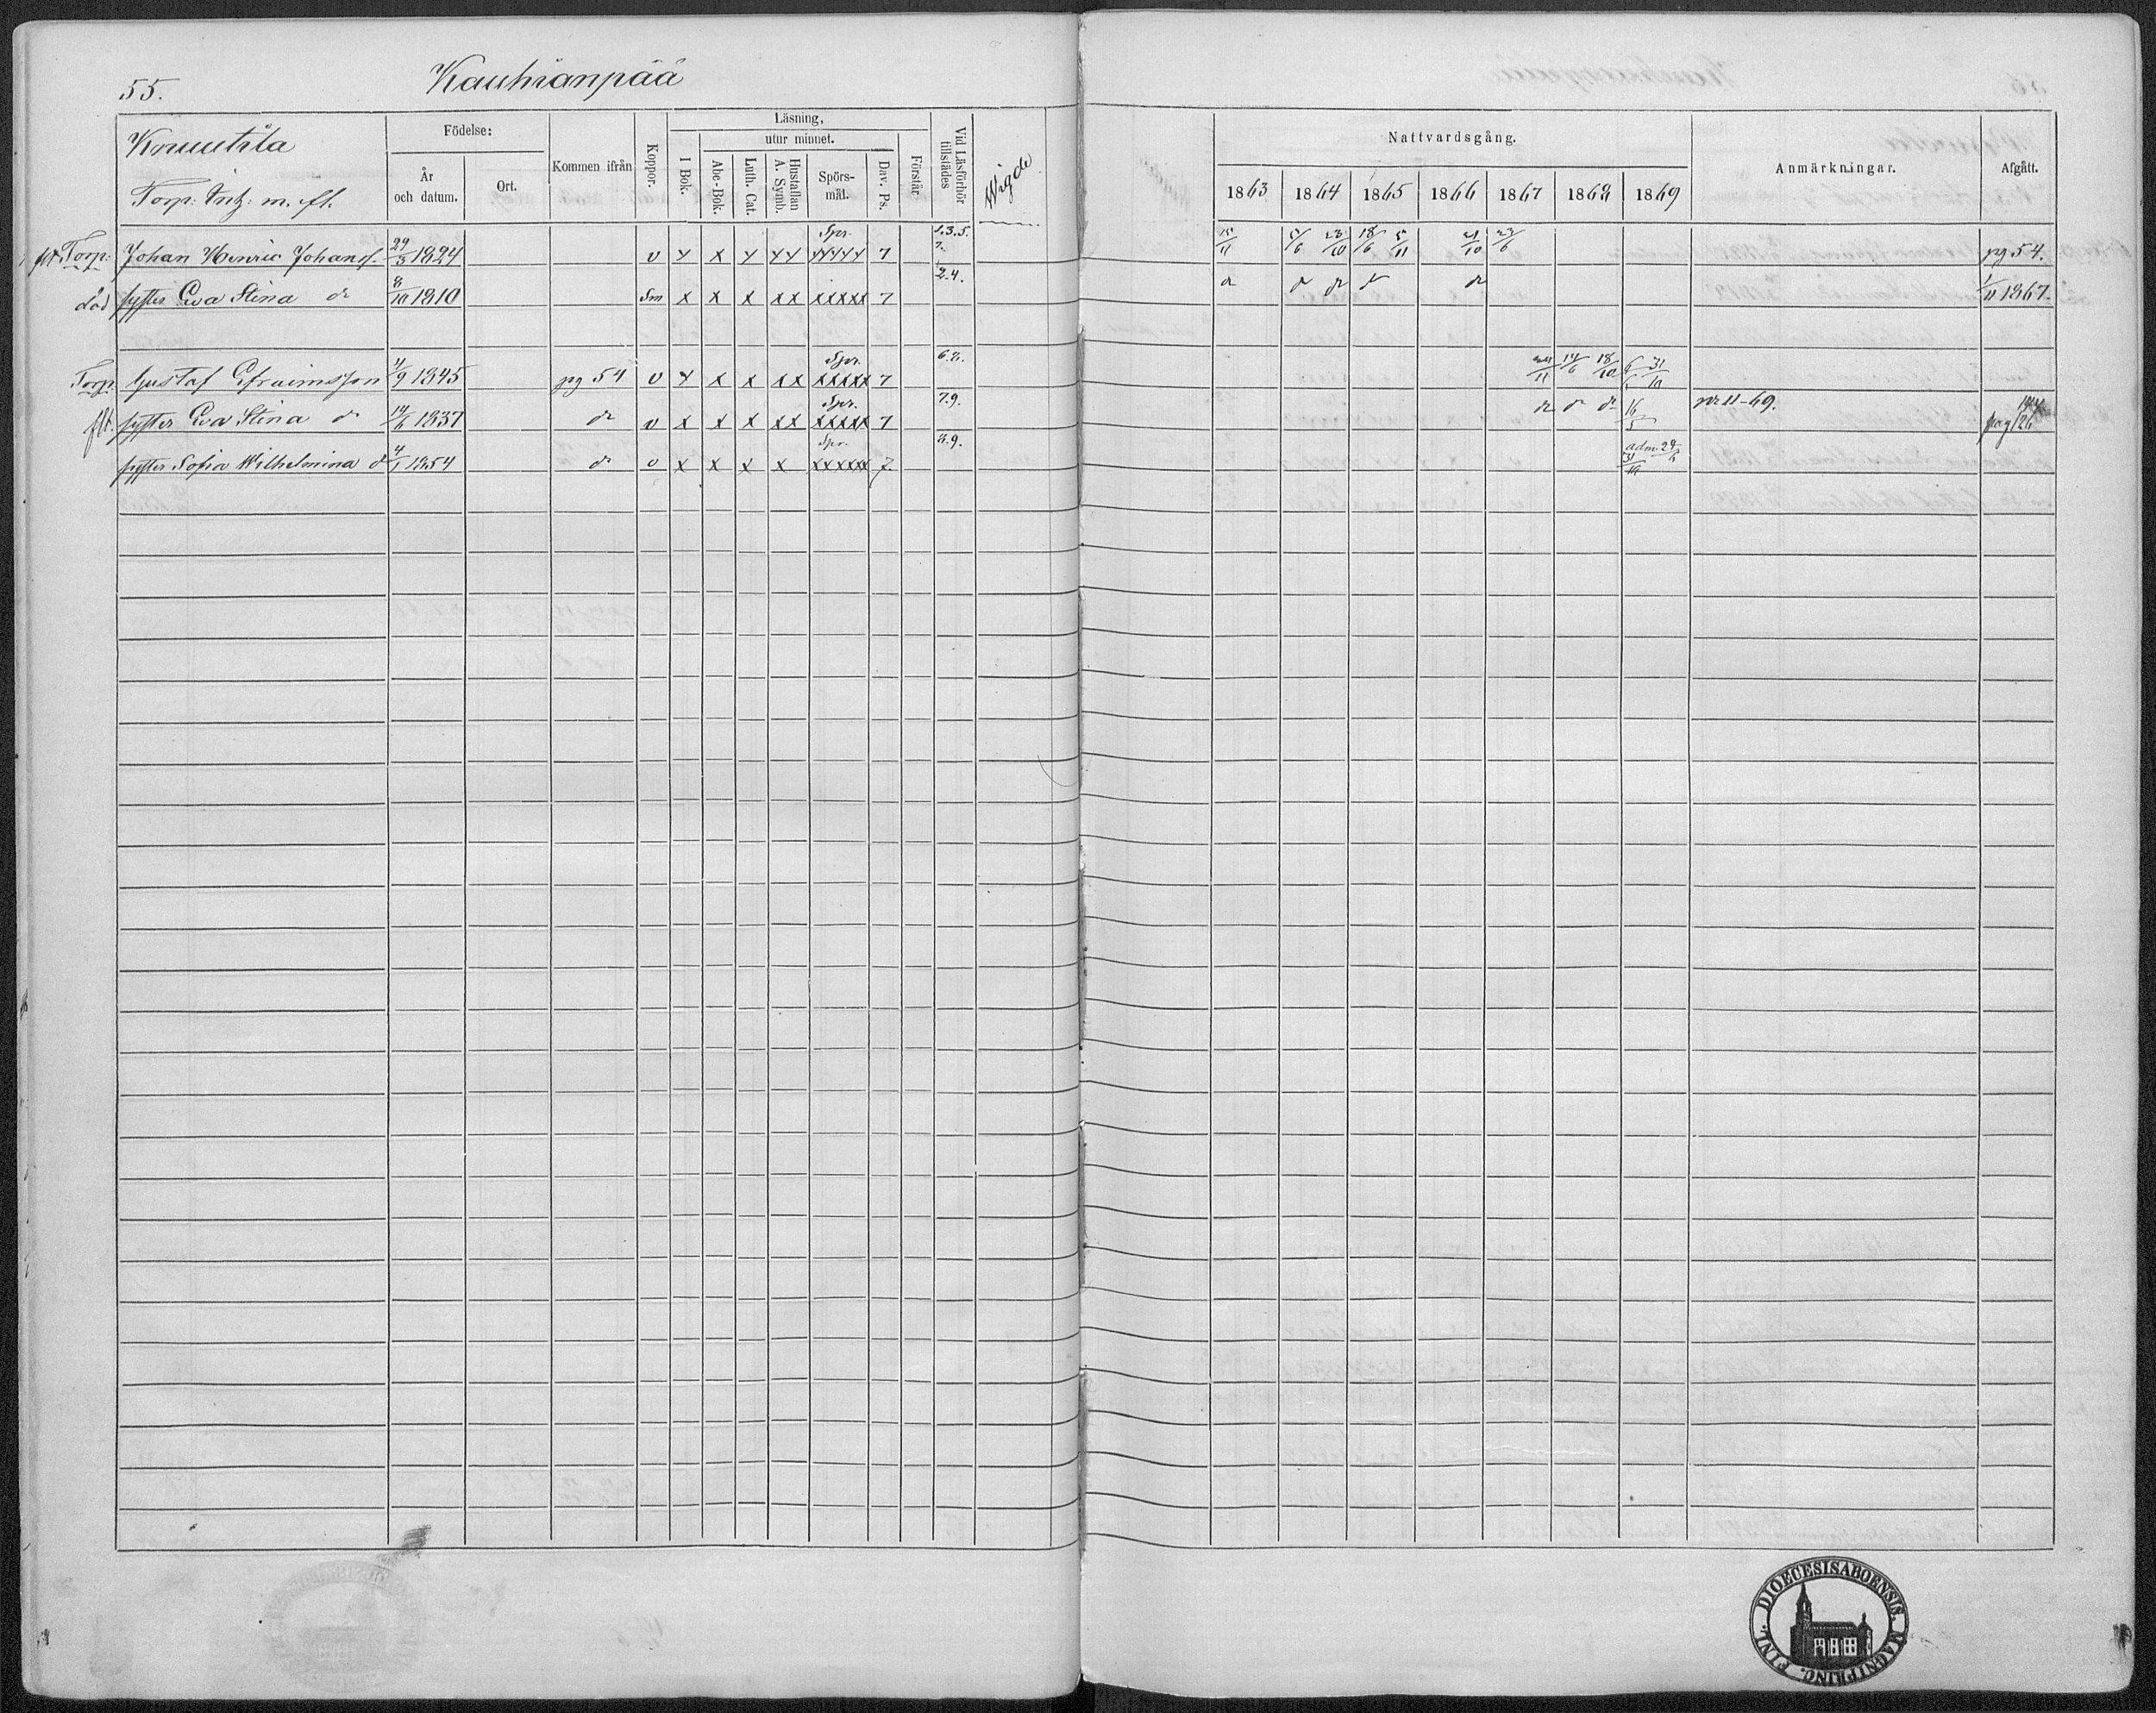 55.
Kauhianpää
Födelse:
Läsning,
utur minnet.
Torp: m. fl.
År
och datum.
Ort.
Kommen ifrån
Koppor.
I Bok.
Abc-Bok.
Luth. Cat.
Hustaflan
A. Symb.
Spörs-
mål.
Dav. Ps.
Förstår
Vid Läsförhör
tillstädes
Wigde
Nattvardsgång.
1863 1864 1865 1866 1867 1868 1869
Anmärkningar.
Afgått.
Torp: Johan Henric Johanss. 29/3 1824 v x x x xx Spr. xxxxx 7 1.3.5.7. 15/11 5/6 18/6 5/11 21/10 23/6 pg 54.
död syster Eva Stina do 8/10 1810 Sm x x x xx xxxxx 7 2.4. do do do do do 1/11 1867.
Torp. Gustaf Efraimsson 4/9 1845 pg 54 v x x x xx Spr. xxxxx 7 6.8. 14/6 18/10 31/10
flt. syster Eva Stina do 14/6 1837 do v x x x xx Spr. xxxxx 7 7.9. do do do 16/5 pag 126
syster Sofia Wilhelmina do 4/1 1854 do v x x x x Spr. xxxxx 7. 8.9. adm. 29/6 31/10
FINL. DIOECESIS ABOENSIS. MAGNI PRINC.